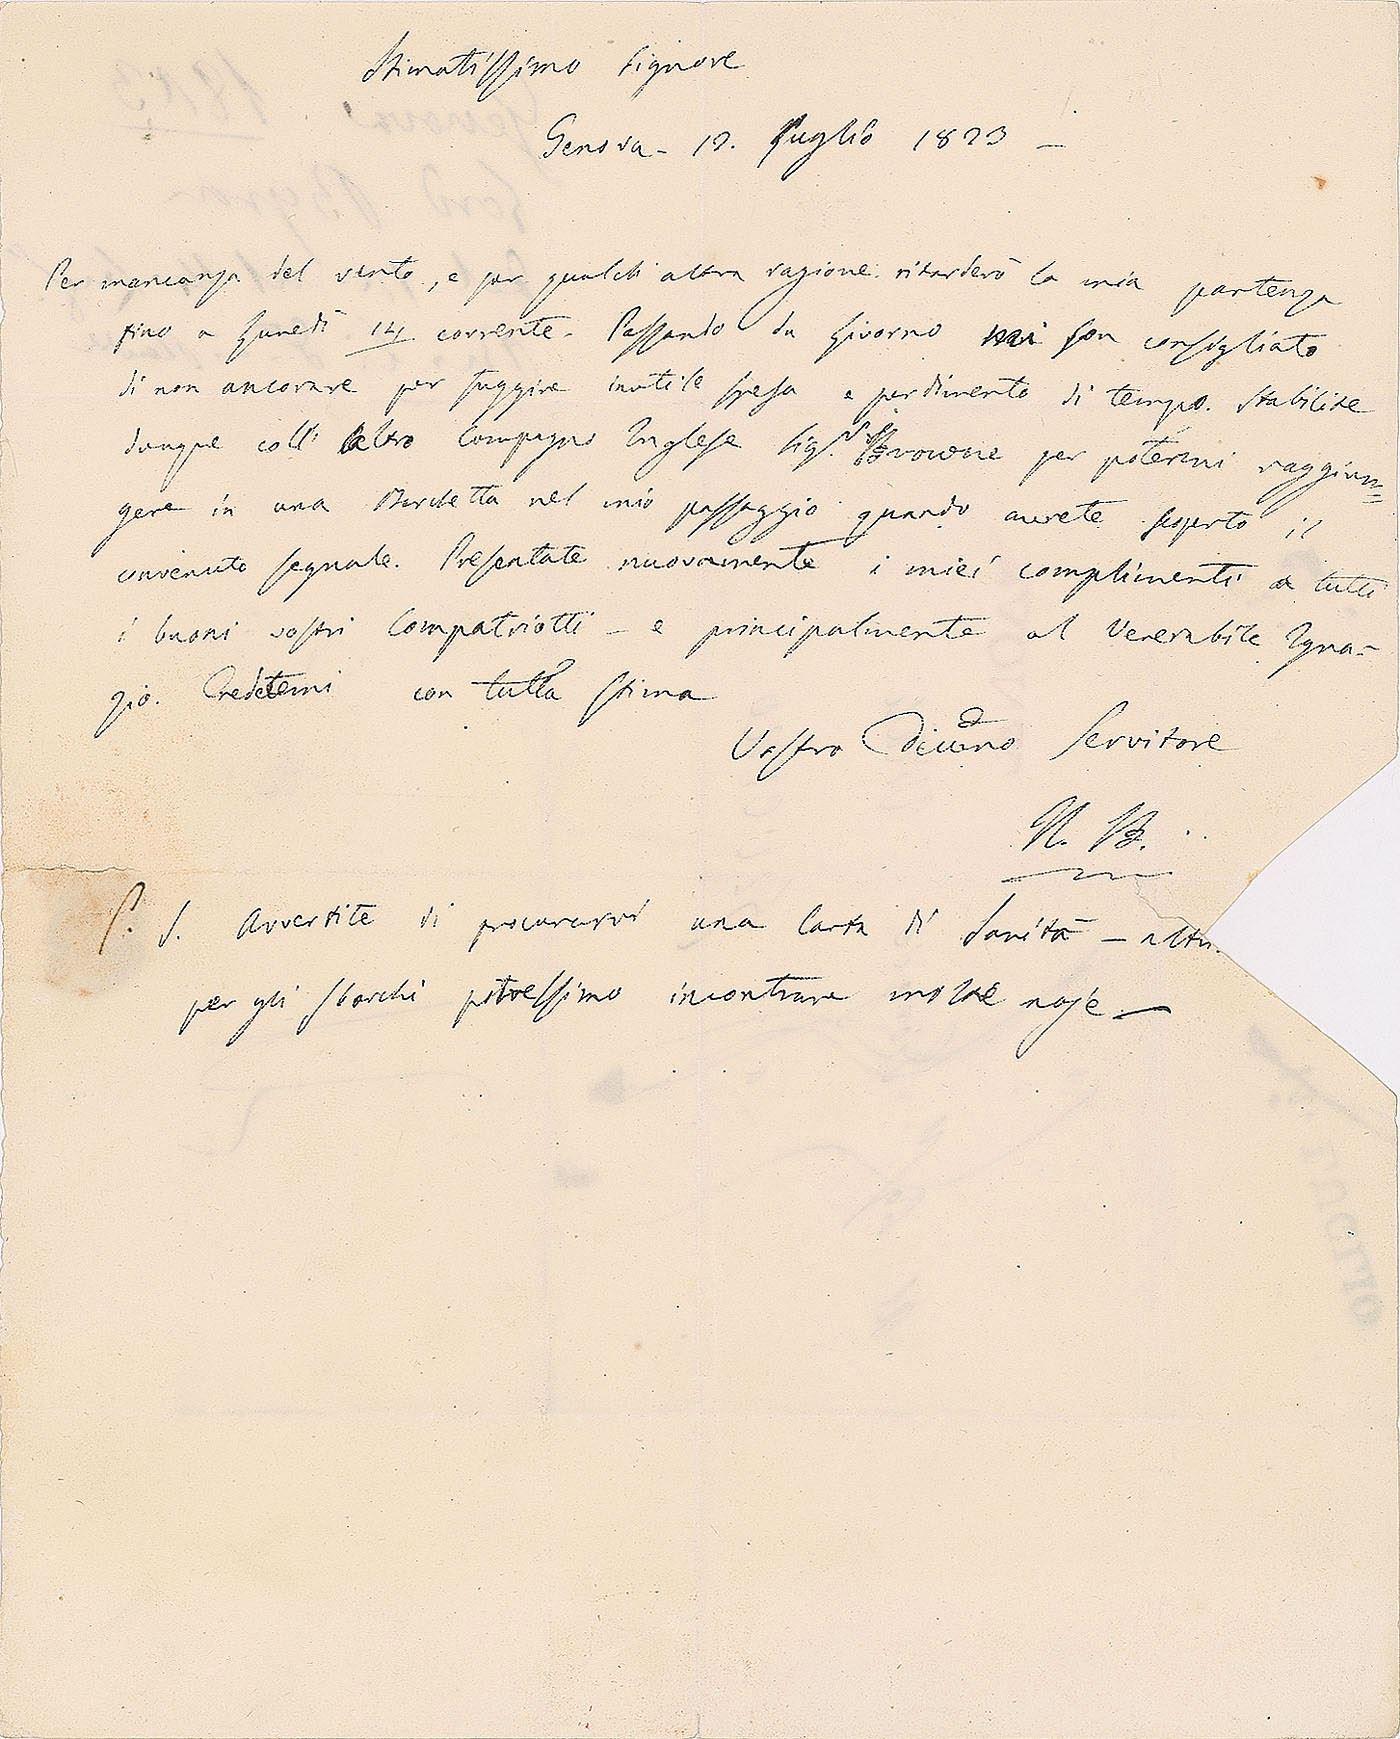 Stimatissimo Signore
Genova - 12. Luglio 1823 —
Per mancanza del vento, e per qualch altra ragione ritarderò la mia partenza
fino a Lunedì 14 corrente. Passando da Livorno mi son consigliato
di non ancorare per fuggire inutile spesa e perdimento di tempo. Stabilite
dunque coll' altro Compagno Inglese Sigr. Browne per potermi raggiun=
gere in una Barchetta nel mio passaggio quando avrete scoperto il
convenuto segnale. Presentate nuovamente i miei complimenti a tutti
i buoni vostri Compatriotti - e principalmente al Venerabile Igna-
zio. Credetemi con tutta stima
Vostro Servitore
N. B.
P. S. Avvertite di procurarvi una Carta di Sanità - altri
per gli sbarchi potressimo incontrare molte noje —